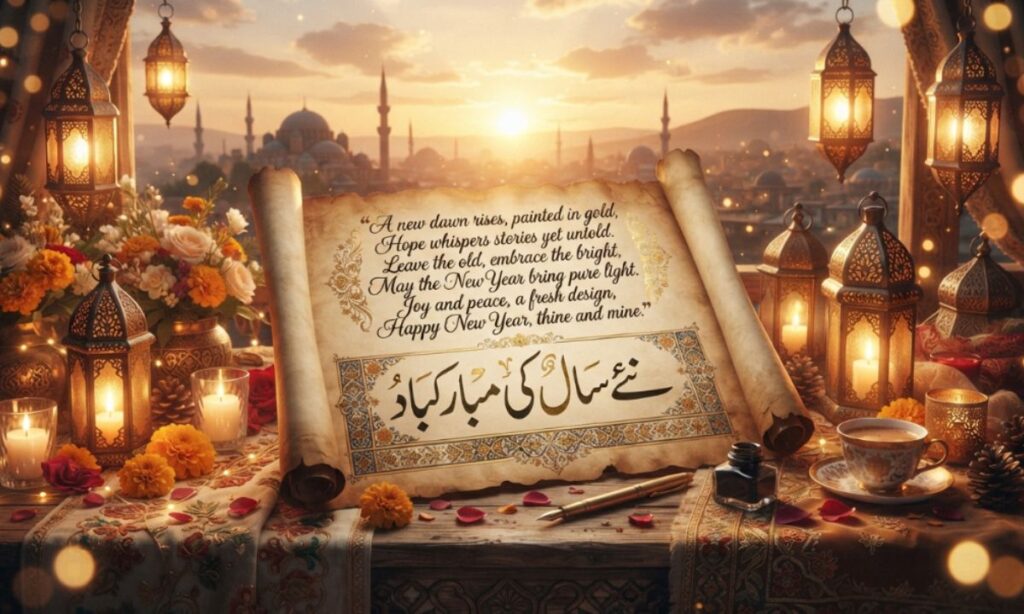 “A new dawn rises, painted in gold,
Hope whispers stories yet untold.
Leave the old, embrace the bright,
May the New Year bring pure light.
Joy and peace, a fresh design,
Happy New Year, thine and mine.”
نئے سال کی مبارکباد